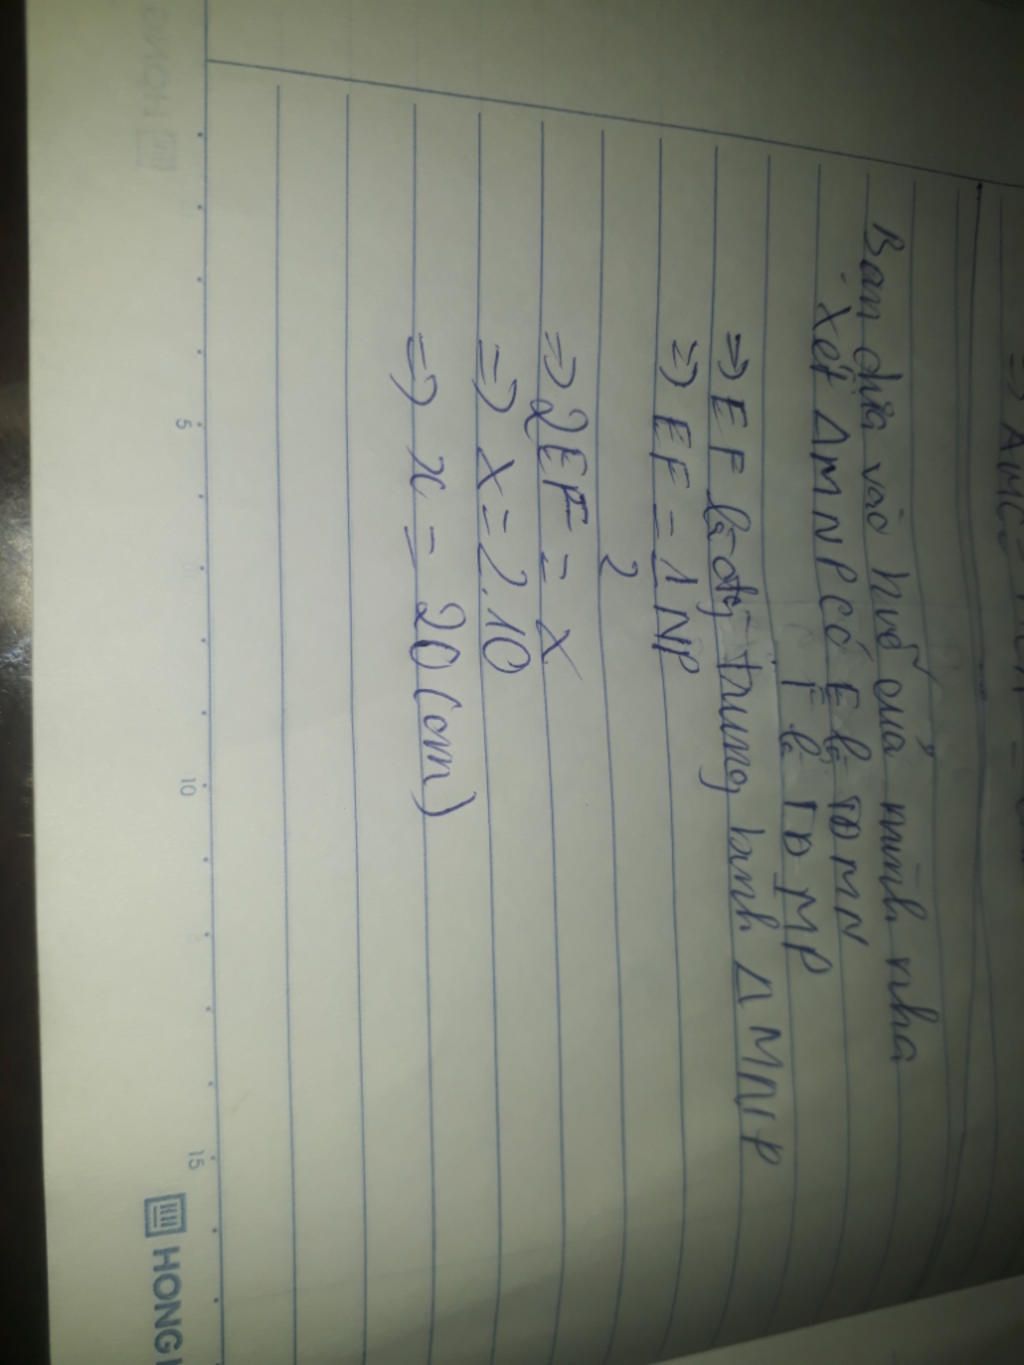 ⇒ AMC
Bạn dựa vào hướ của mình nha
Xét ΔMNP có E là TĐ MN
F là TĐ MP
⇒ EF là đg trung bình ΔMNP
⇒ EF = 1 NP
2
⇒ 2EF = x
⇒ x = 2.10
⇒ x = 20 (cm)
5 10 15
HONG
HONG